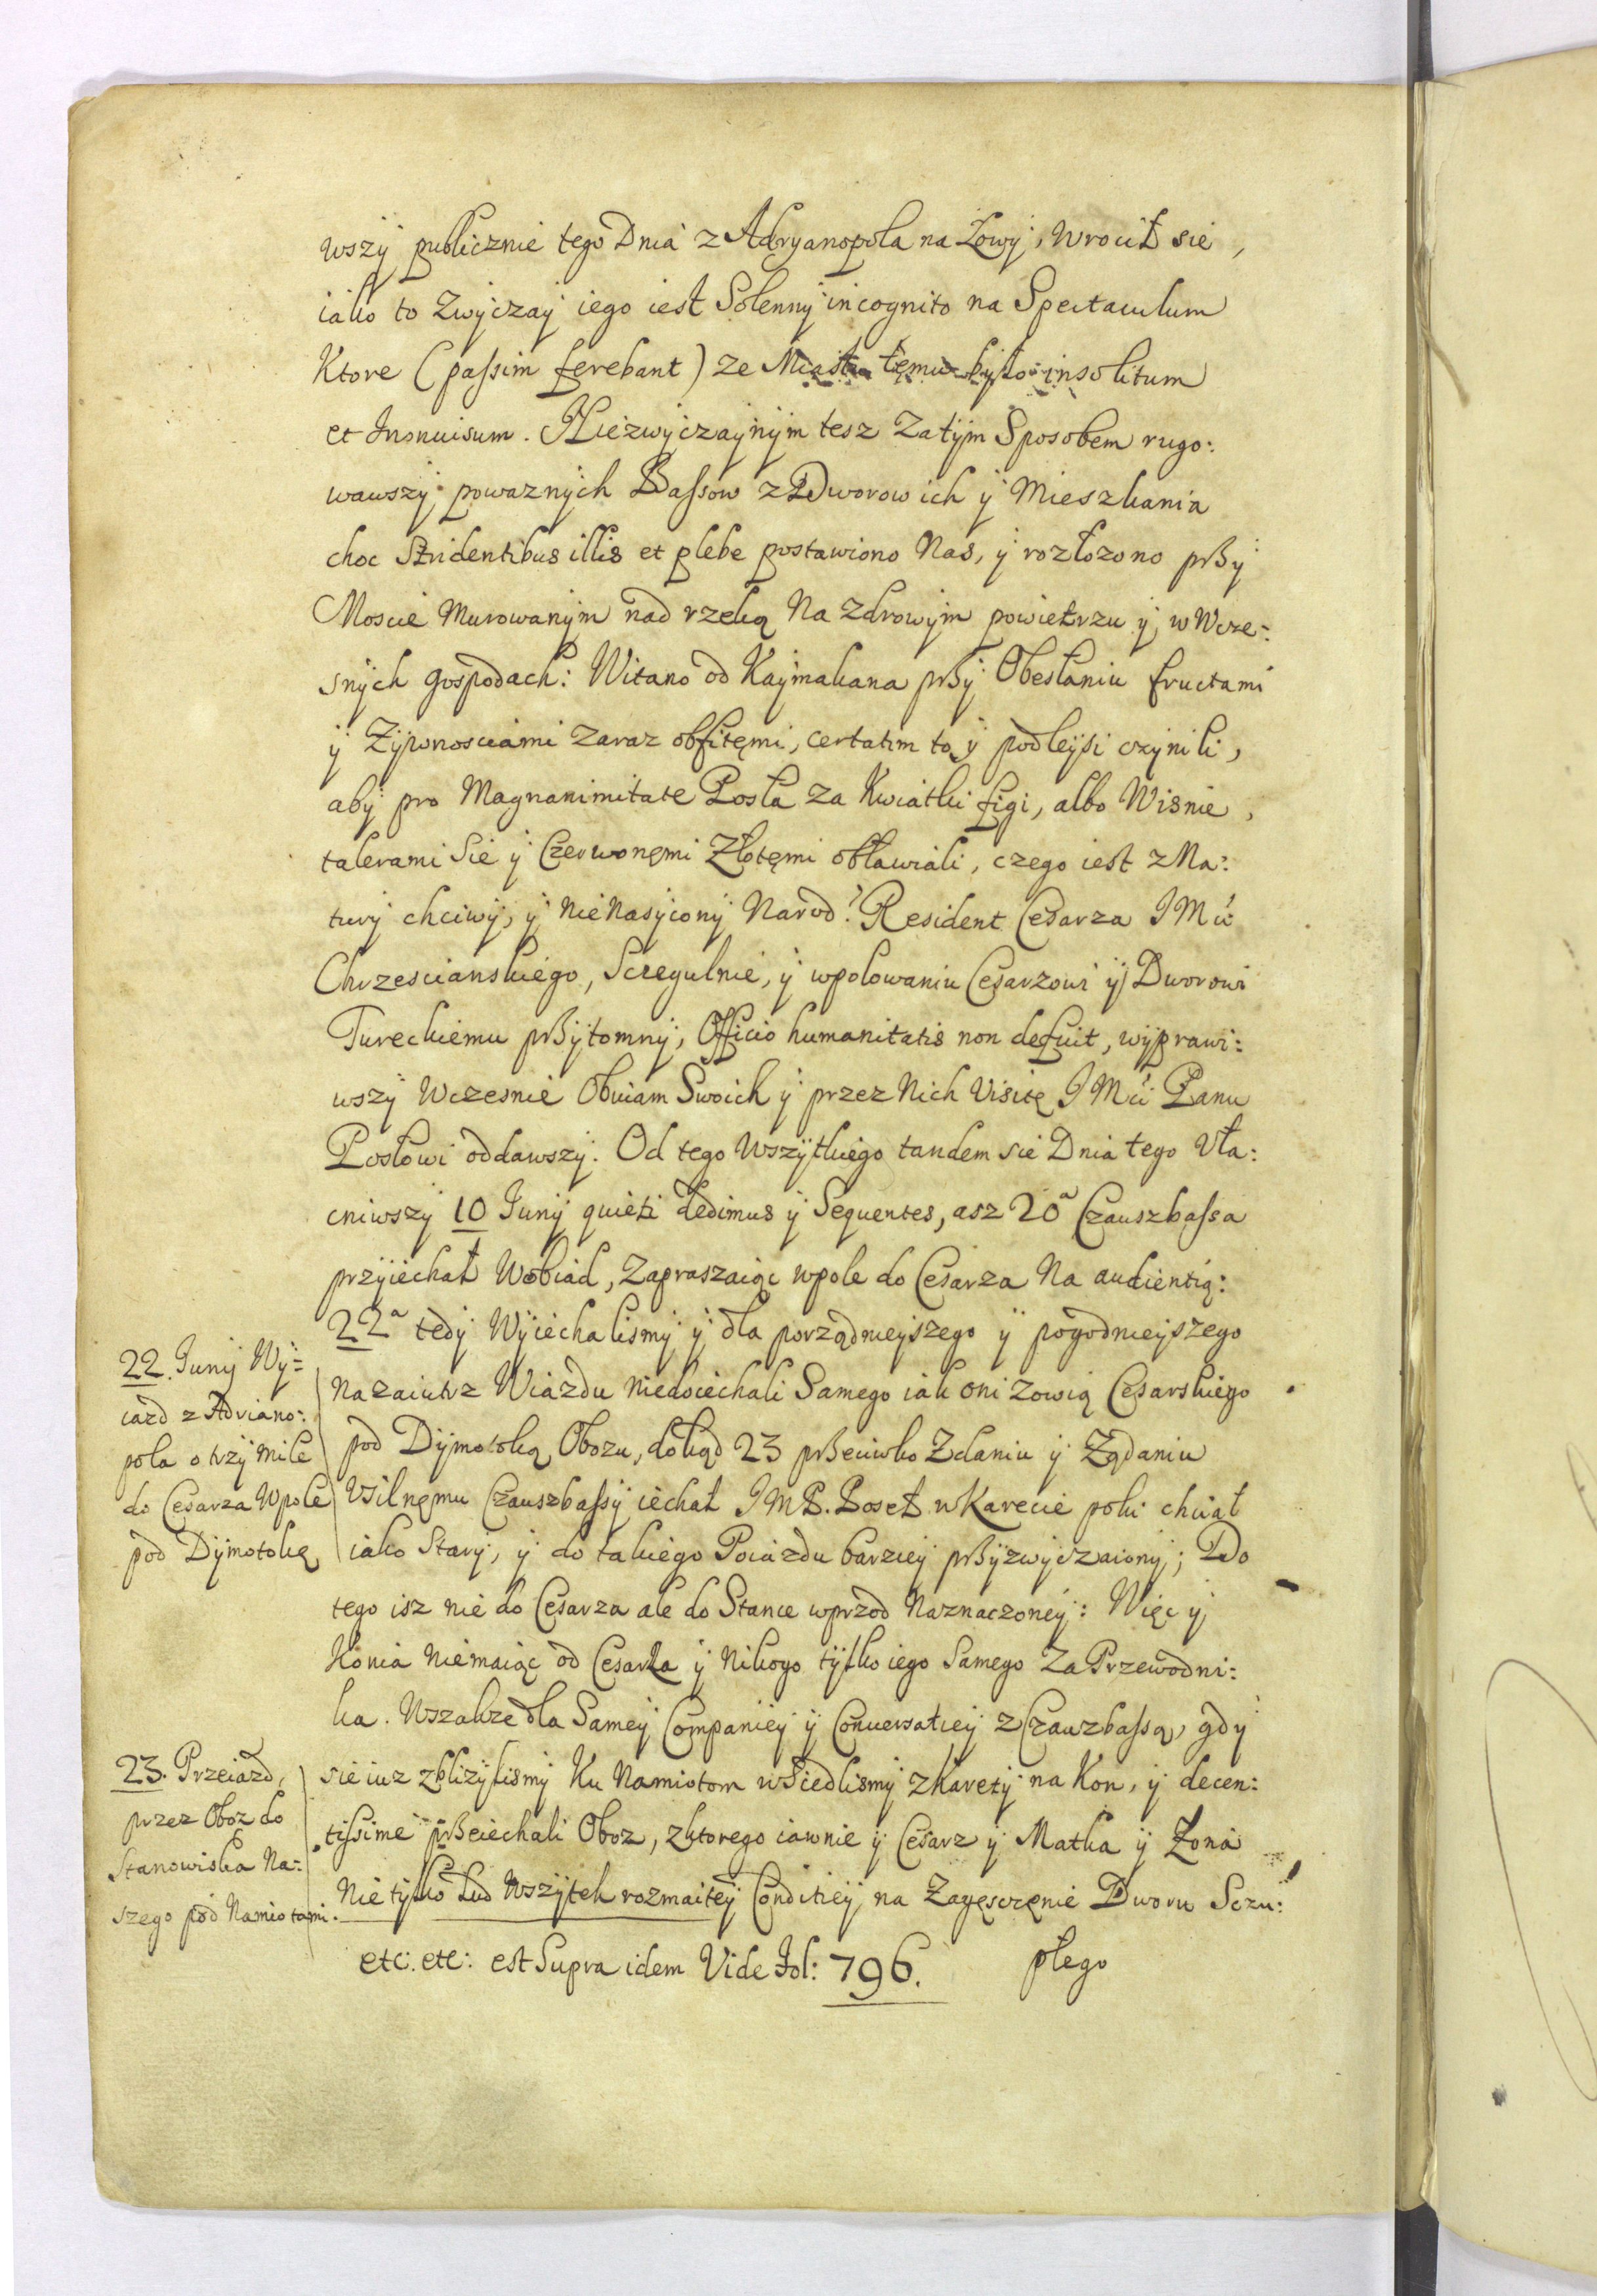 wszÿ publicznie tego Dnia z Adryanopola na Łowÿ, wrocił sie,
iako to Zwÿczaÿ iego iest Solennÿ incognito na Spectaculum
Ktore (passim ferebant) ze Miastu temu bÿło insolitum
et Inonuisum. Niezwÿczaÿnÿm tesz Zatÿm Sposobem rugo:
wawszÿ powaznÿch Bassow z Dworow ich ÿ Mieszkania
choc Stridentibus illis et plebe postawiono Nas, ÿ rozłozono prSÿ
Moscie Murowanÿm nad rzeką Na Zdrowÿm powietrzu ÿ w Wcze:
snÿch gospodach: Witano od Kaÿmakana prSÿ Obesłaniu fructami
ÿ Zÿwnosciami Zaraz obfitęmi, certatim to ÿ podleÿsi czÿnili,
abÿ pro Magnanimitate Posła za Kwiatki figi, albo Wisnie,
talerami Sie ÿ Czerwonęmi Złotęmi obławiali, czego iest z Na:
turÿ chciwÿ, ÿ NieNasÿconÿ Narod: Resident Cesarza IMci
Chrzescianskiego, Sczegulnie, ÿ wpolowaniu Cesarzowi ÿ Dworowi
Tureckiemu prSÿtomnÿ, Officio humanitatis non defuit, wÿprawi:
wszÿ Wczesnie Obuiam Swoich ÿ przez Nich Visitę IMci Panu
Posłowi oddawszÿ. Od tego Wszÿtkiego tandem sie Dnia tego Vła:
cniwszÿ 10 Junÿ quieti dedimus ÿ Sequentes, asz 20a Czauszbassa
przÿiechał Wobiad, Zapraszaiąc wpole do Cesarza Na audientią:
22a tedÿ Wÿiechalismÿ ÿ dla porządnieÿszego ÿ pogodnieÿszego
nazaiutrz Wiazdu niedoiechali Samego iak oni zowią Cesarskiego
pod Dÿmotoką Obozu, dokąd 23 prSeciwko Zdaniu ÿ Ządaniu
Vsilnęmu Czauszbassÿ iechał IMP. Poseł w Karecie poki chciał
iako Starÿ, ÿ do takiego Poiazdu barzieÿ prSÿzwÿczaionÿ; Do
tego isz nie do Cesarza ale do Stance wprzod Naznaczoneÿ: Więc ÿ
Konia Niemaiąc od Cesarza ÿ Nikogo tÿlko iego Samego Za Przewodni:
ka. Wszakze dla Sameÿ Companieÿ ÿ Conuersatieÿ z Czauzbassą, gdÿ
sie iuz zblizÿlismÿ Ku Namiotom wsiedlismÿ z Karetÿ na Kon, ÿ decen:
tissime prSeiechali Oboz, z ktorego iawnie ÿ Cesarz ÿ Matka ÿ Zona
Nie tÿlko Lud Wszÿtek rozmaiteÿ Conditieÿ na Zagęsczęnie Dworu Sczu:
płego
etc: etc: est Supra idem Vide Fol: 796.
22. Junÿ Wÿ=
iazd z Adriano:
pola o trzÿ Mile
do Cesarza Wpole
pod Dÿmotoką
23. Przeiazd,
przez Oboz do
Stanowiska Na:
szego pod Namiotami.